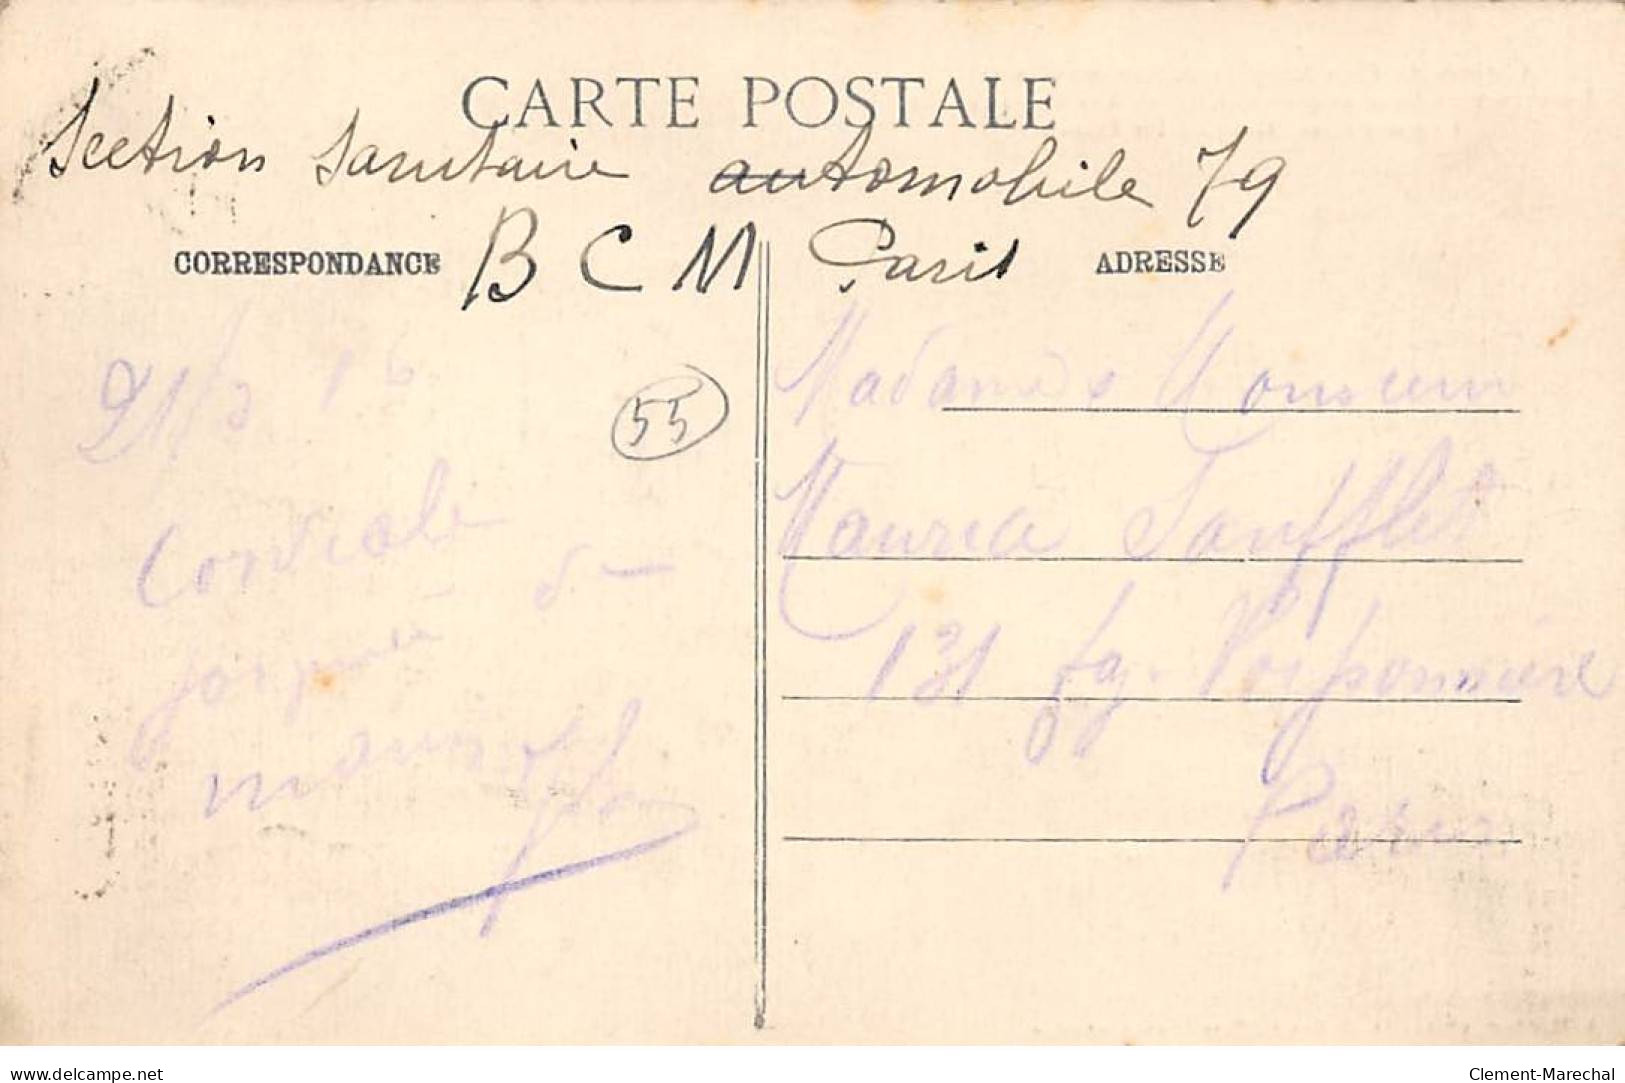 CARTE POSTALE
Section sanitaire automobile 79
CORRESPONDANCE B C M Paris ADRESSE
21/3 16
55
Cordiale
de
Madame & Monsieur
Maurice Soufflet
131 fg. Poissonnière
Paris
www.delcampe.net Clement-Marechal